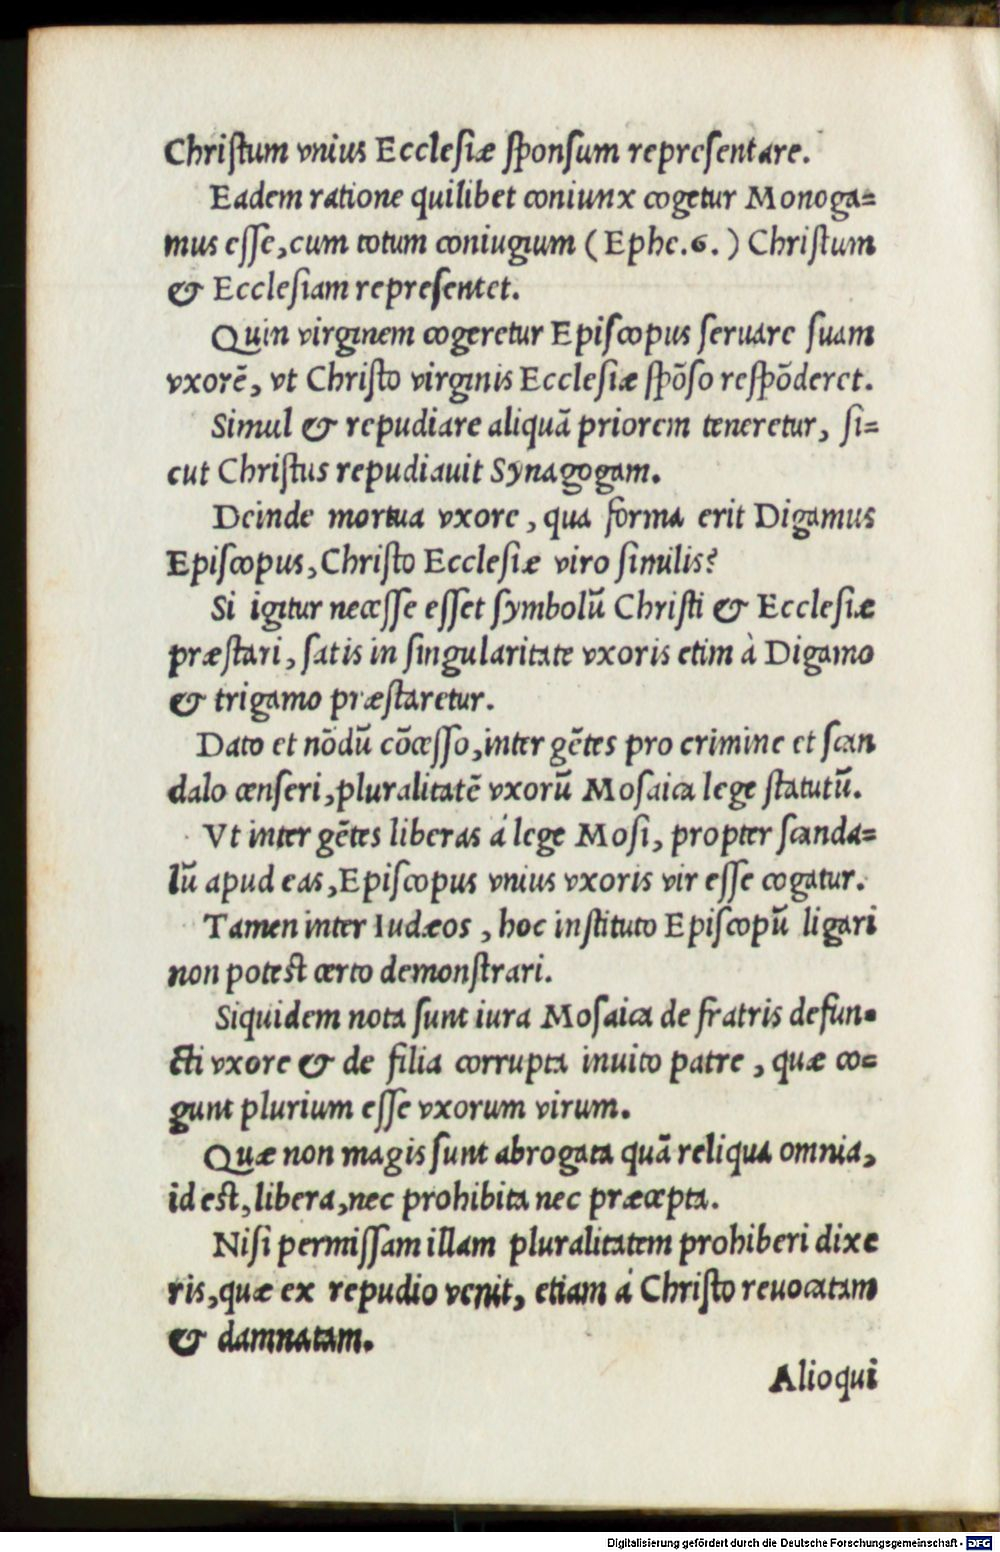 Chriſtum vnius Eccleſiæ ſponſum repreſentare.
Eadem ratione quilibet coniunx cogetur Monoga=
mus eſſe, cum totum coniugium (Ephe.6.) Chriſtum
& Eccleſiam repreſentet.
Quin virginem cogeretur Epiſcopus ſeruare ſuam
vxorē, vt Chriſto virginis Eccleſiæ ſpōſo reſpōderet.
Simul & repudiare aliquā priorem teneretur, ſi=
cut Chriſtus repudiauit Synagogam.
Deinde mortua vxore, qua forma erit Digamus
Epiſcopus, Chriſto Eccleſiæ viro ſimilis?
Si igitur neceſſe eſſet ſymbolū Chriſti & Eccleſiæ
præſtari, ſatis in ſingularitate vxoris etim à Digamo
& trigamo præſtaretur.
Dato et nōdū cōceſſo, inter gētes pro crimine et ſcan
dalo cenſeri, pluralitatē vxorū Moſaica lege ſtatutū.
Vt inter gētes liberas á lege Moſi, propter ſcanda=
lū apud eas, Epiſcopus vnius vxoris vir eſſe cogatur.
Tamen inter Iudæos, hoc inſtituto Epiſcopū ligari
non poteſt certo demonſtrari.
Siquidem nota ſunt iura Moſaica de fratris defun=
cti vxore & de filia corrupta inuito patre, quæ co=
gunt plurium eſſe vxorum virum.
Quæ non magis ſunt abrogata quā reliqua omnia,
id eſt, libera, nec prohibita nec præcepta.
Niſi permiſſam illam pluralitatem prohiberi dixe
ris, quæ ex repudio venit, etiam á Chriſto reuocatam
& damnatam.
Alioqui
Digitalisierung gefördert durch die Deutsche Forschungsgemeinschaft - DFG